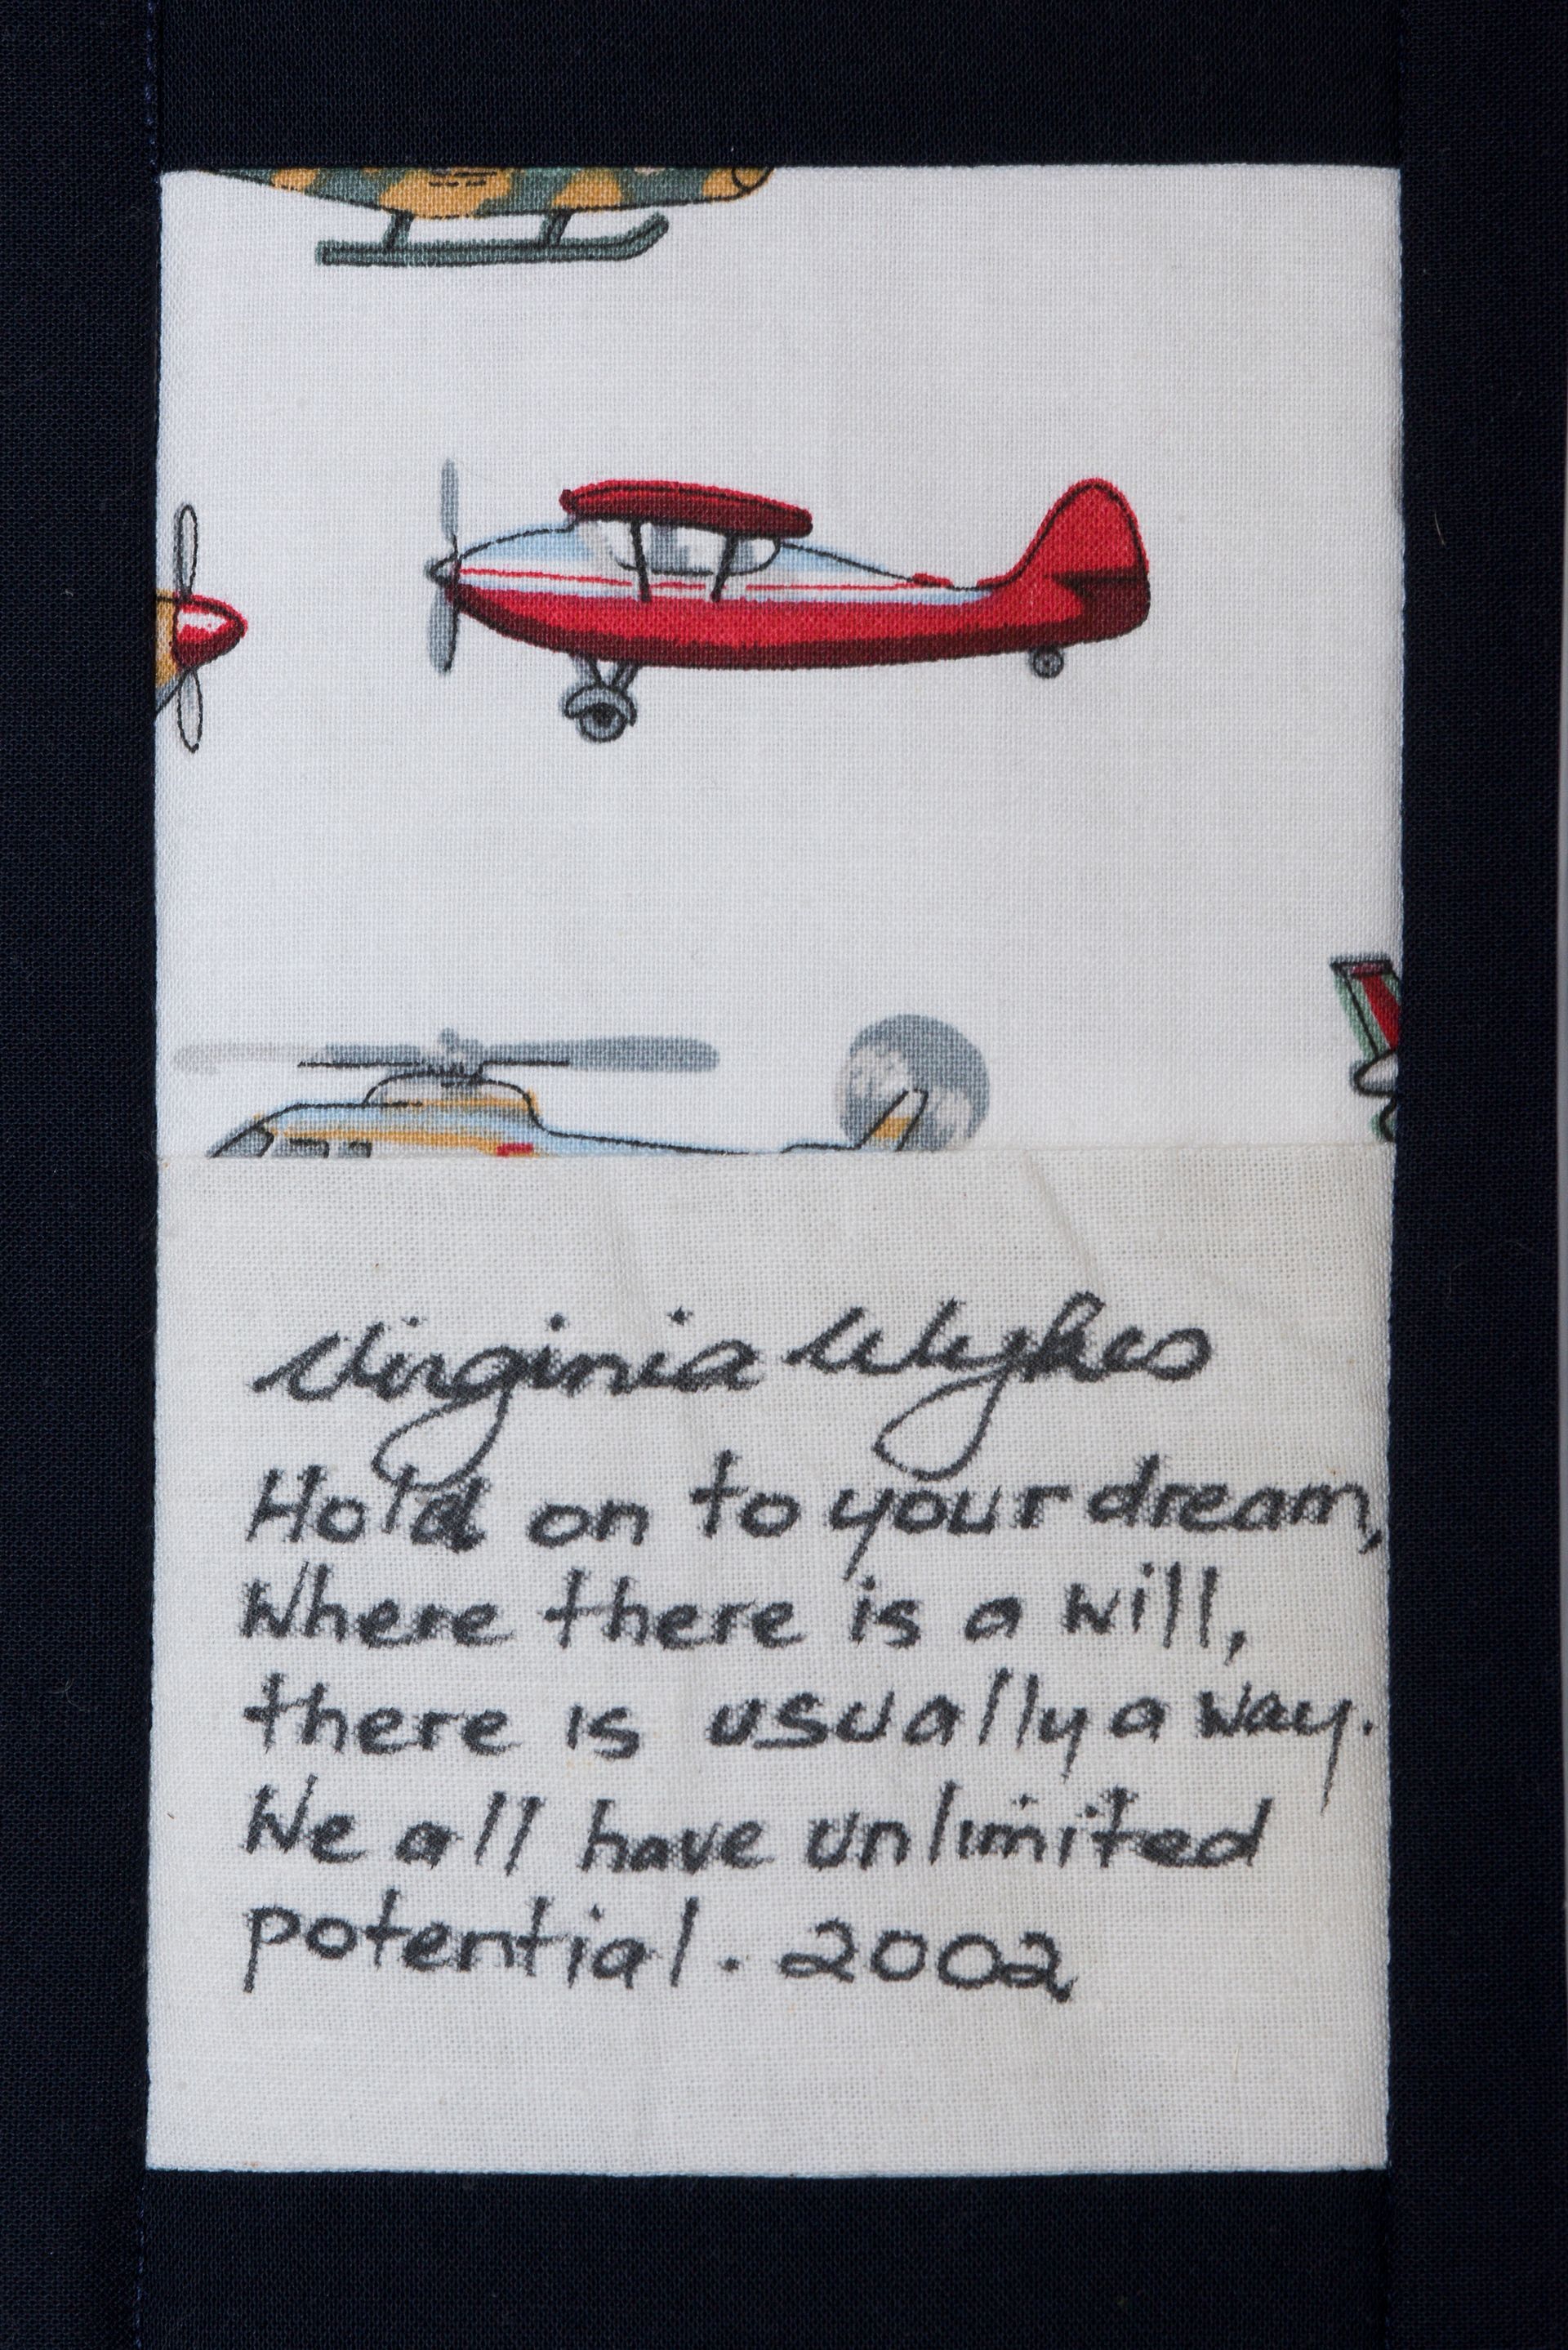 Virginia Wykes
Hold on to your dream,
Where there is a will,
there is usually a way.
We all have unlimited
potential. 2002